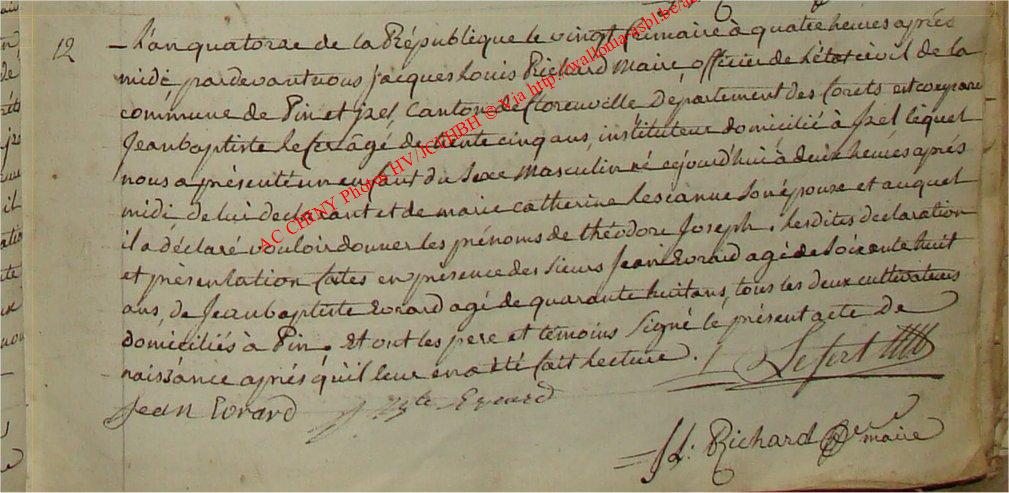 12
L'an quatorze de la République le vingt frimaire à quatre heures après
midi pardevant nous jacques Louis Richard Maire, officier de l'état civil de la
commune de Pin et izel, Canton de florenville Département des forets est comparu
Jean baptiste lefert âgé de trente cinq ans, instituteur domicilié à Izel lequel
nous a présenté un enfant du Sexe Masculin né cejourd'hui à deux heures après
midi de lui declarant et de marie catherine Son épouse et auquel
il a déclaré vouloir donner les prénoms de théodore Joseph. Lesdites declaration
et présentation faites en présence des sieurs Jean Evrard agé de Soixante huit
ans, de Jean baptiste Evrard agé de quarante huit ans, tous les deux cultivateurs
domiciliés à Pin. Et ont les pere et témoins Signé le présent acte de
naissance après qu'il leur en a été fait lecture. Lefert
Jean Evrard J Bte Evrard
Richard maire
AC CHINY Photos HV/JCHHBH © via http://wallonia-asbl.be/